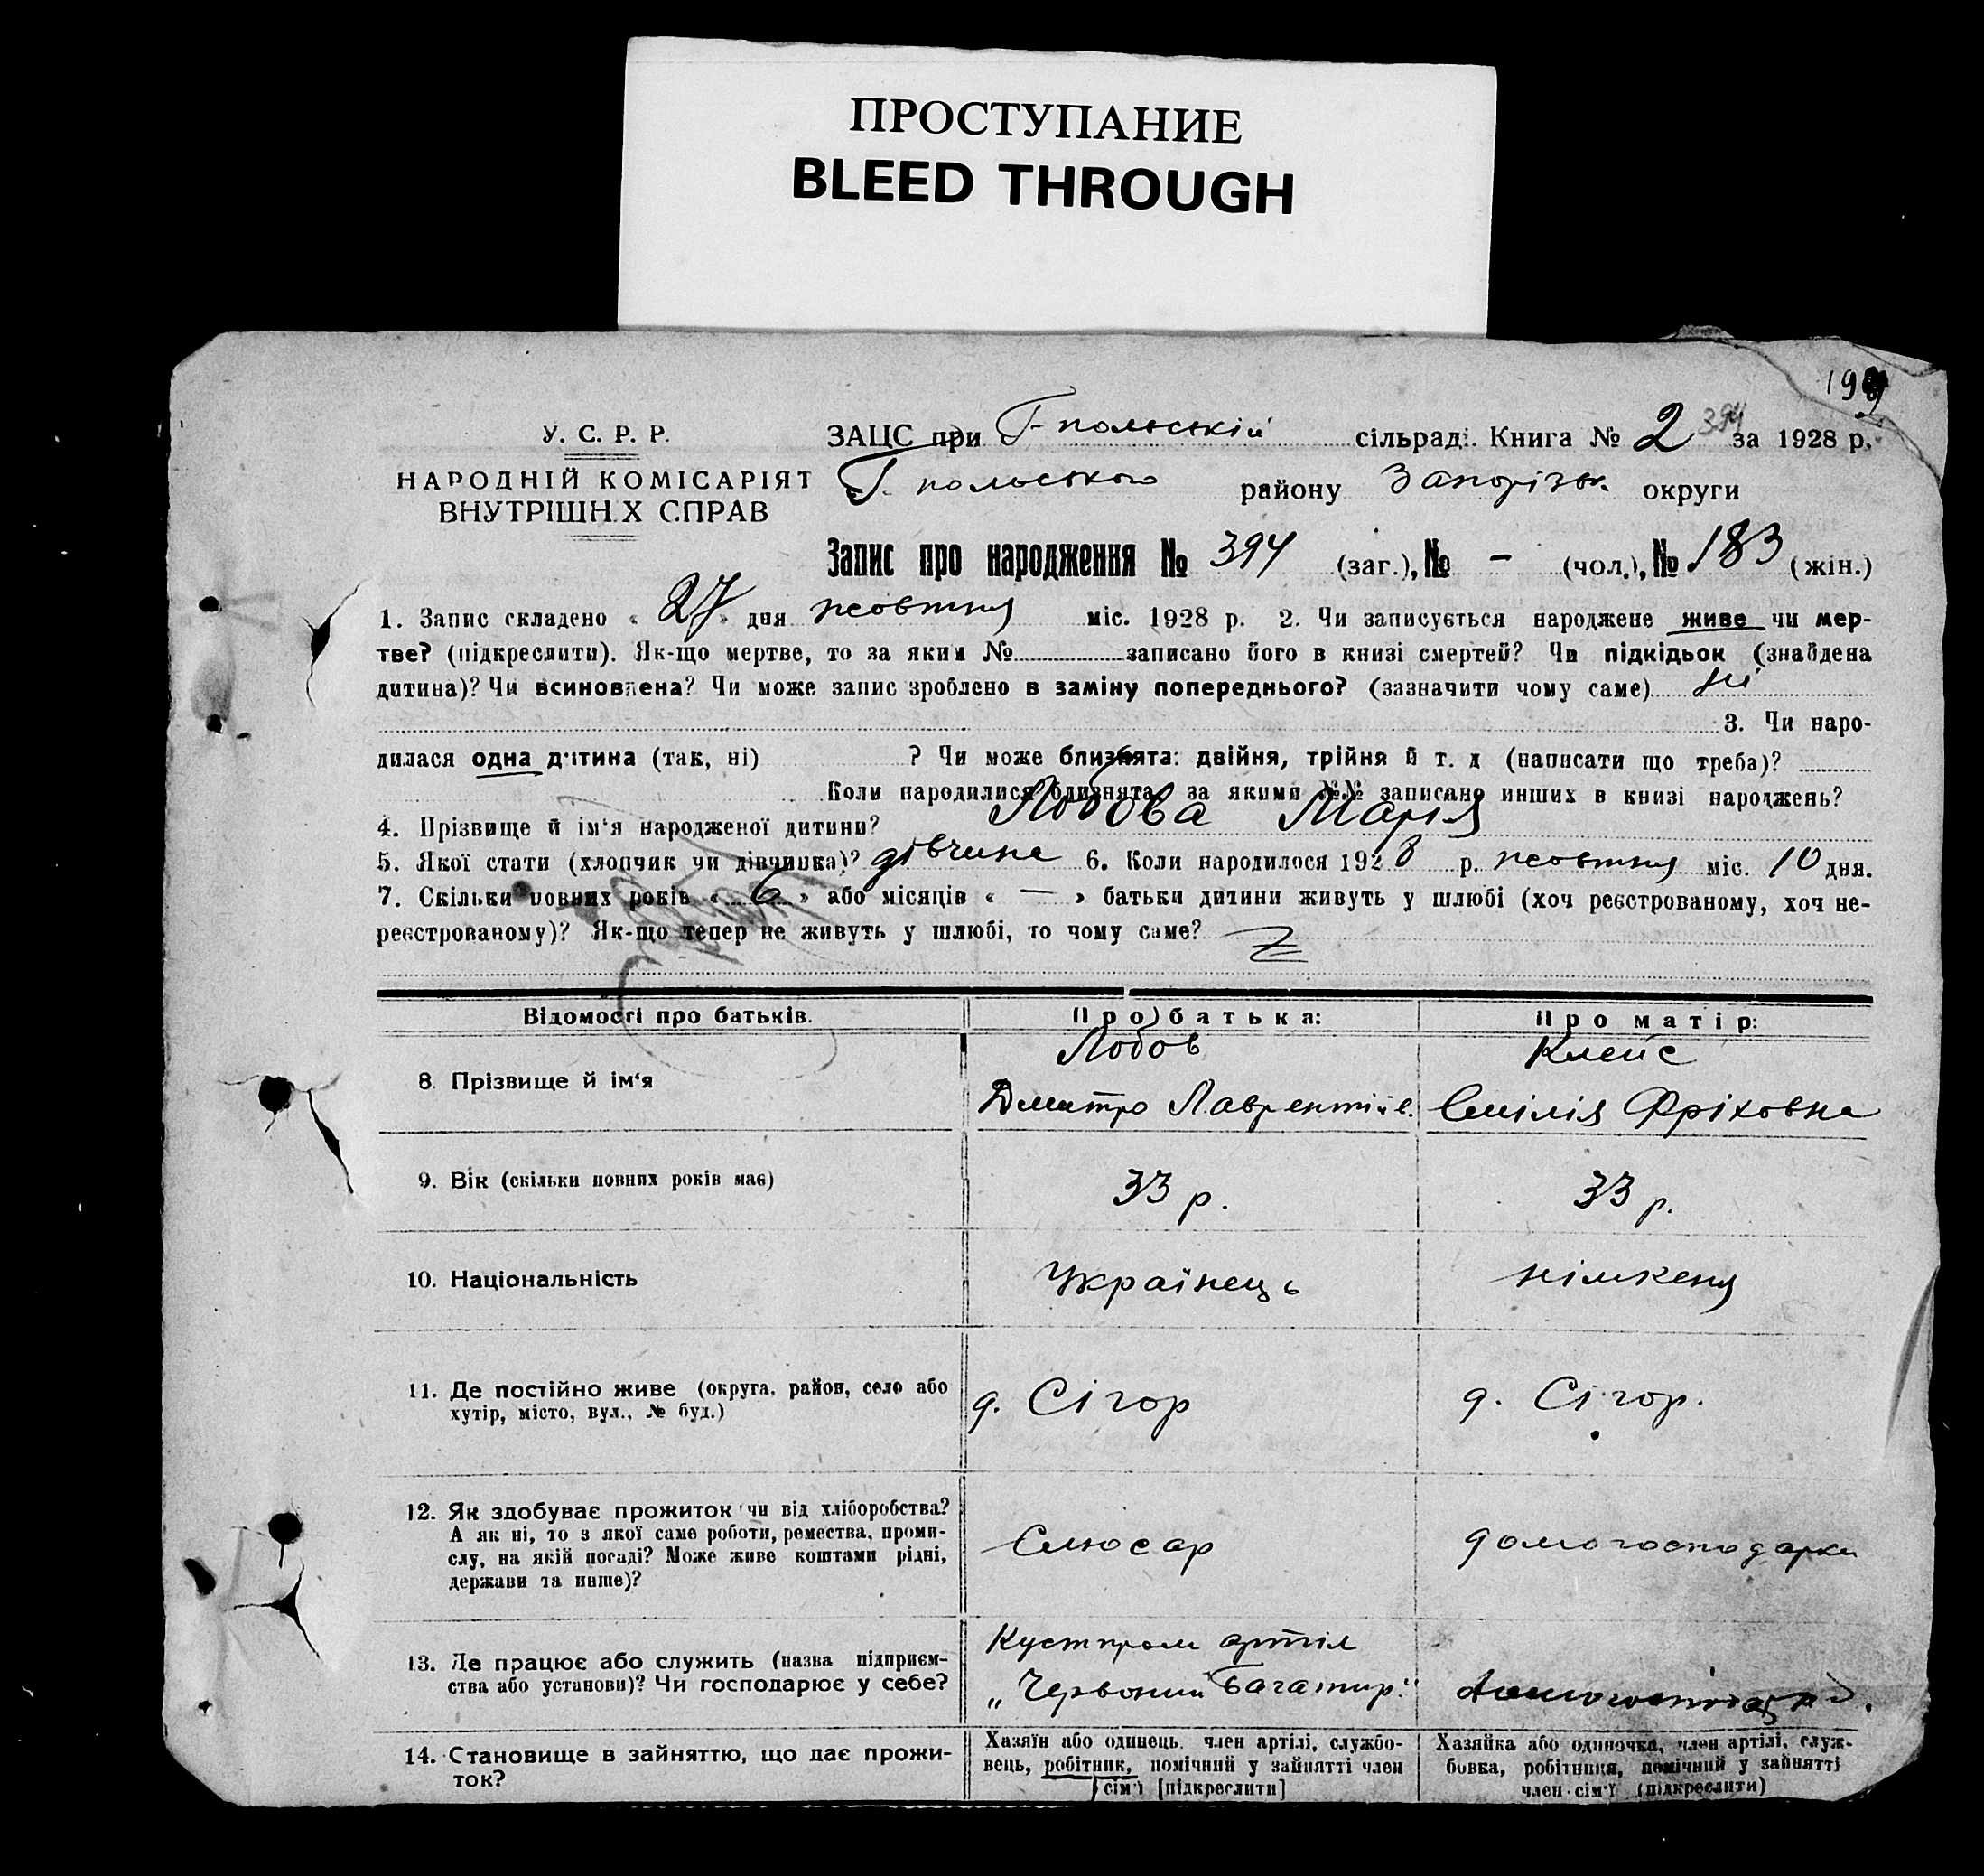 ПРОСТУПАНИЕ
BLEED THROUGH
У. С. Р. Р.
НАРОДНІЙ КОМІСАРІЯТ
ВНУТРІШН.Х СПРАВ
ЗАЦС при Г-польській сільрад. Книга № 2 394 за 1928 р.
Г. польського району Запорізьк. округи
Запис про народження № 394 (заг.), № – (чол.), № 183 (жін.)
1. Запис складено « 27 » дня жовтня міс. 1928 р. 2. Чи записується народжене живе чи мер-
тве? (підкреслити). Як-що мертве, то за яким № записано його в книзі смертей? Чи підкідьок (знайдена
дитина)? Чи всиновлена? Чи може запис зроблено в заміну попереднього? (зазначити чому саме) ні
3. Чи наро-
дилася одна дитина (так, ні) ? Чи може близнята: двійня, трійня й т. д (написати що треба)?
Коли народилися близнята, за якими №№ записано инших в книзі народжень?
4. Прізвище й ім'я народженої дитини? Лобова Марія
5. Якої статі (хлопчик чи дівчинка)? дівчина 6. Коли народилося 1928 р. жовтня міс. 10 дня.
7. Скільки повних років « 6 » або місяців « — » батьки дитини живуть у шлюбі (хоч реєстрованому, хоч не-
реєстрованому)? Як-що тепер не живуть у шлюбі, то чому саме?
Відомості про батьків. Про батька: Про матір:
8. Прізвище й ім'я Лобов Клейс
Дмитро Лаврентіїв. Емілія Фріховна
9. Вік (скільки повних років має) 33 р. 33 р.
10. Національність Українець німкеня
11. Де постійно живе (округа, район, село або
хутір, місто, вул., № буд.) д. Сігор д. Сігор.
12. Як здобуває прожиток чи від хліборобства?
А як ні, то з якої саме роботи, ремества, проми-
слу, на якій посаді? Може живе коштами рідні,
держави та инше)? Слюсар домогосподарки
13. Де працює або служить (назва підприєм-
ства або установи)? Чи господарює у себе? Кустпром артіл
„Червоний Багатир."
14. Становище в зайняттю, що дає прожи-
ток?
Хазяїн або одинець, член артілі, службо-
вець, робітник, помічний у зайнятті член
сім'ї [підкреслити]
Хазяйка або одиночка, член артілі, служ-
бовка, робітниця, помічний у зайнятті
член сім'ї (підкреслити)